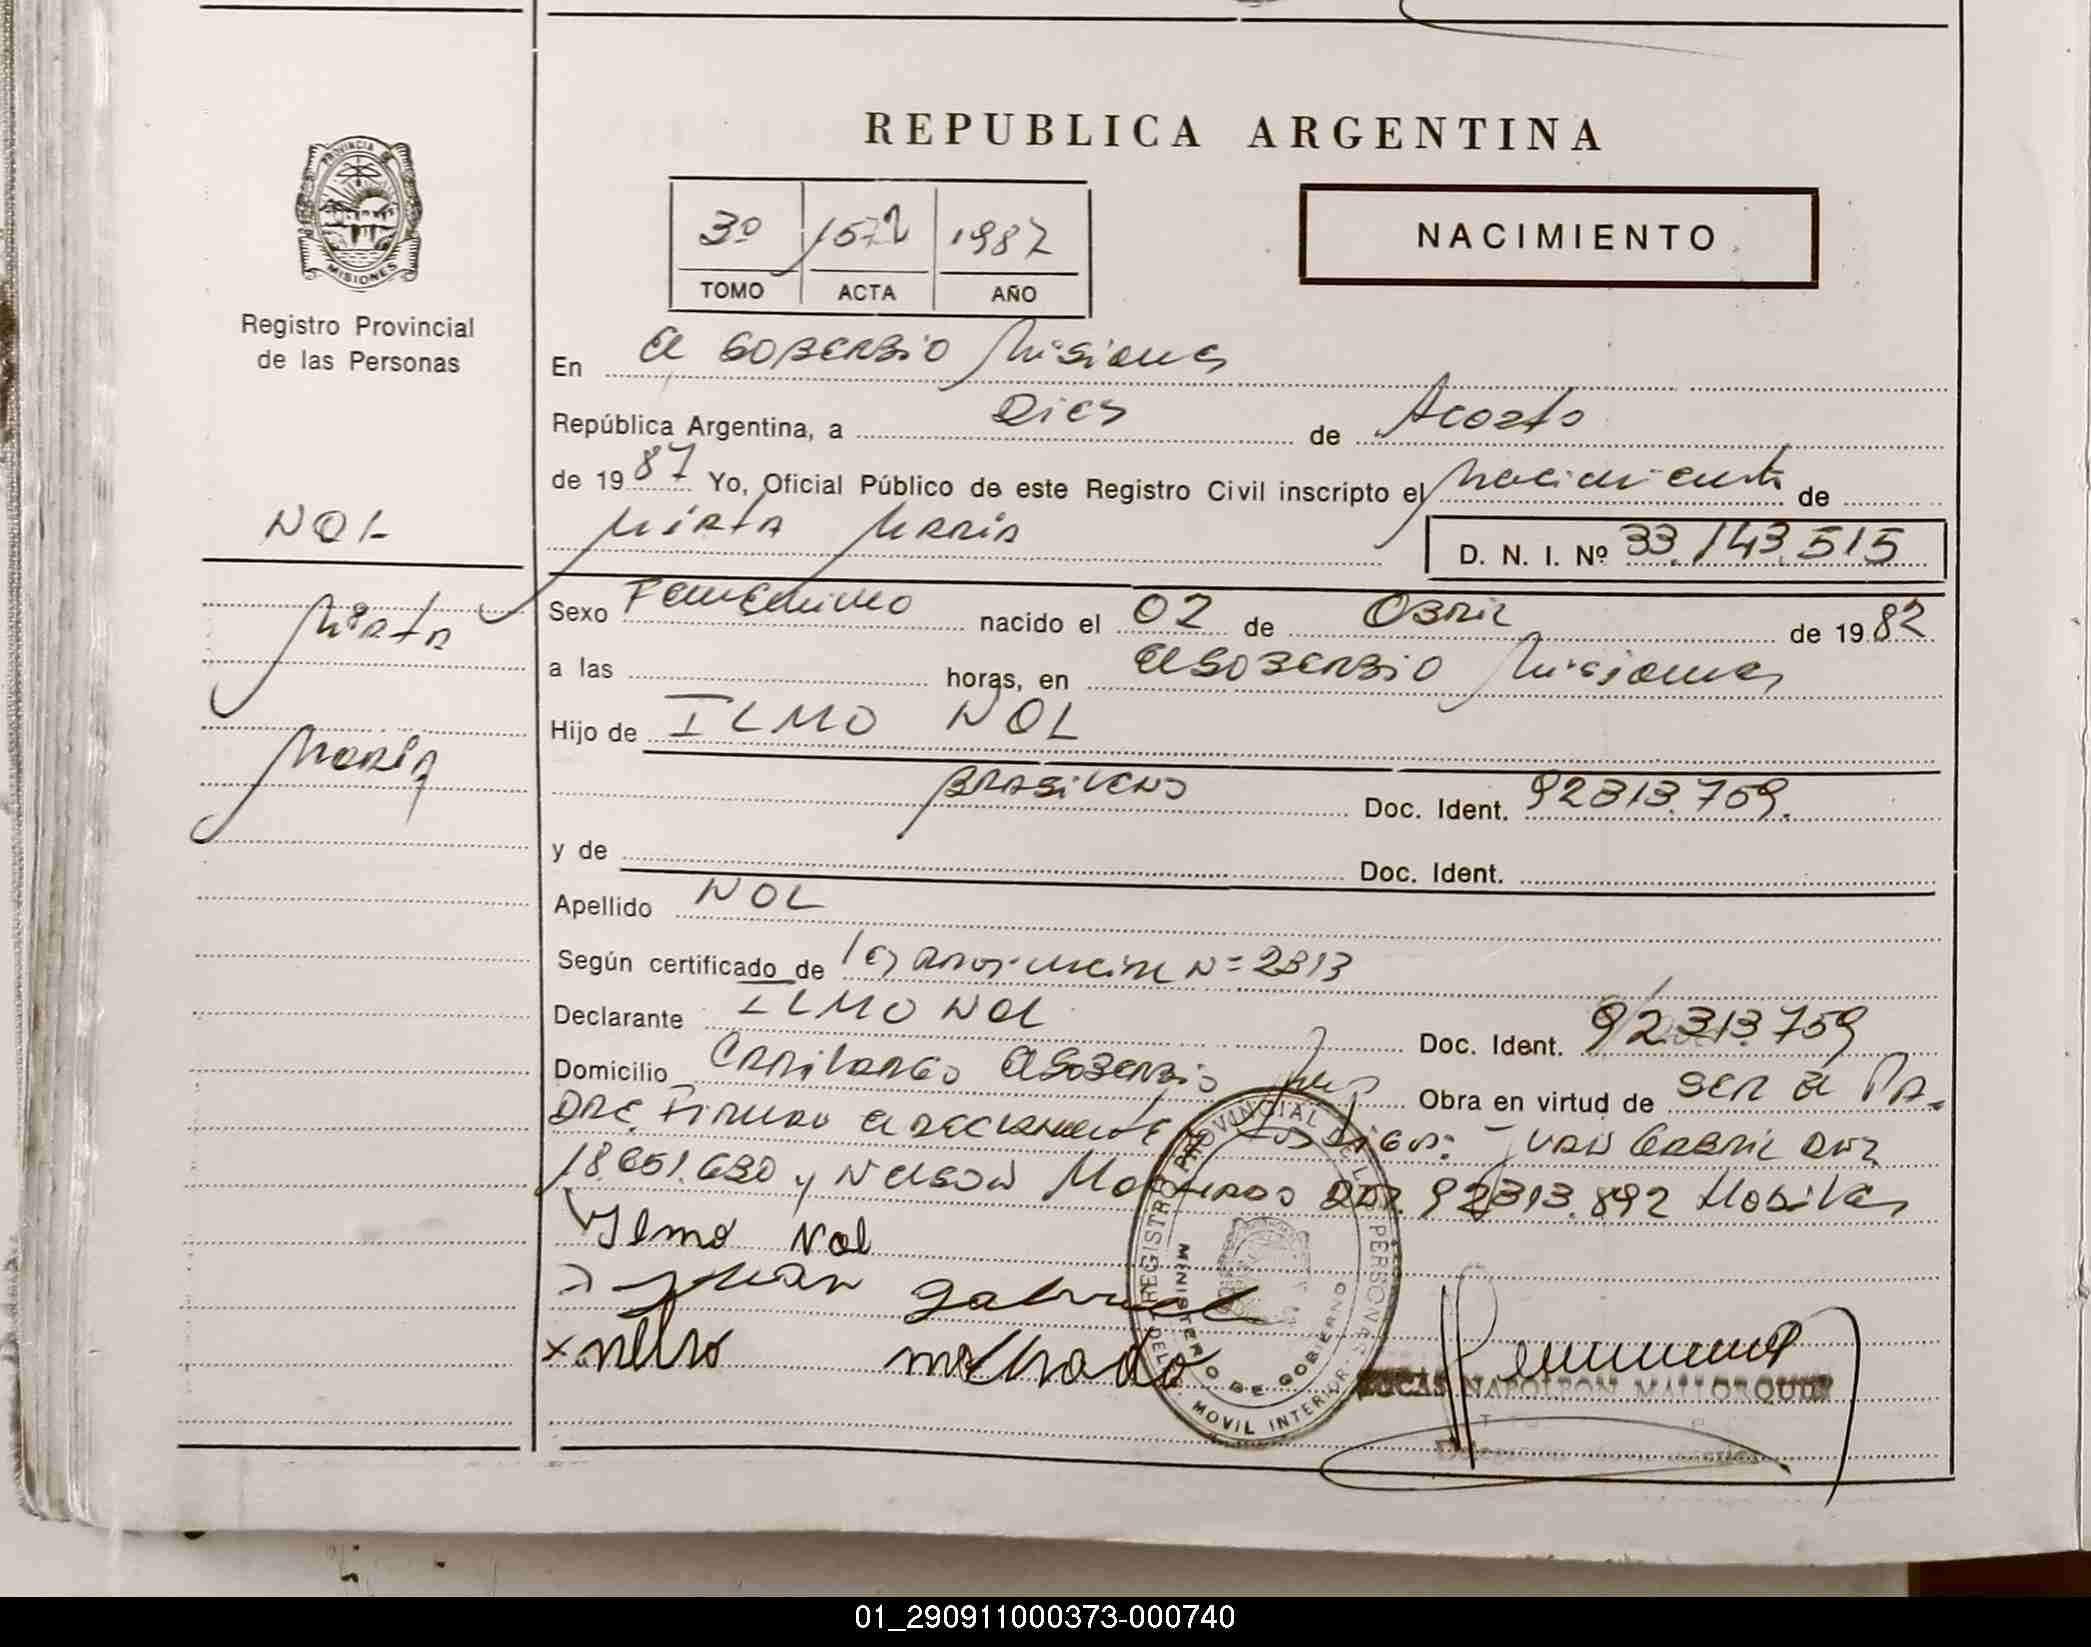 REPUBLICA ARGENTINA
PROVINCIA DE
MISIONES
Registro Provincial
de las Personas
3º 1572 1987
TOMO ACTA AÑO
NACIMIENTO
En El Soberbio Misiones
República Argentina, a Dies de Agosto
de 1987 Yo, Oficial Público de este Registro Civil inscripto el Nacimiento de
Mirta Maria D. N. I. Nº 33.143.515
NOL
Mirta
Maria
Sexo Femenino nacido el 02 de Abril de 1982
a las horas, en El Soberbio Misiones
Hijo de ILMO NOL
Brasileño Doc. Ident. 92313.759.
y de Doc. Ident.
Apellido NOL
Según certificado de Ley Provincial Nº 2813
Declarante ILMO NOL Doc. Ident. 92313.759
Domicilio El Soberbio Obra en virtud de ser el Pa-
dre Firman el declarante y Juan Gabriel
18.651.630 y Nelson 92313.892
Ilmo Nol
Juan Gabriel
REGISTRO PROVINCIAL DE LAS PERSONAS
MINISTERIO DE GOBIERNO
MOVIL INTERIOR
LUCAS NAPOLEON MALLORQUIN
01_290911000373-000740